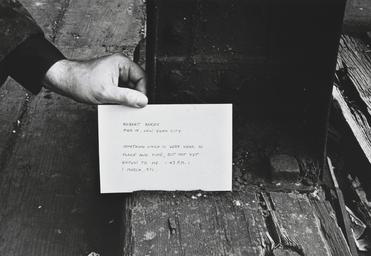 ROBERT BARRY
PIER 18, NEW YORK CITY
SOMETHING WHICH IS VERY NEAR IN
PLACE AND TIME, BUT NOT YET
KNOWN TO ME. 1:43 P.M.;
1 MARCH, 1971